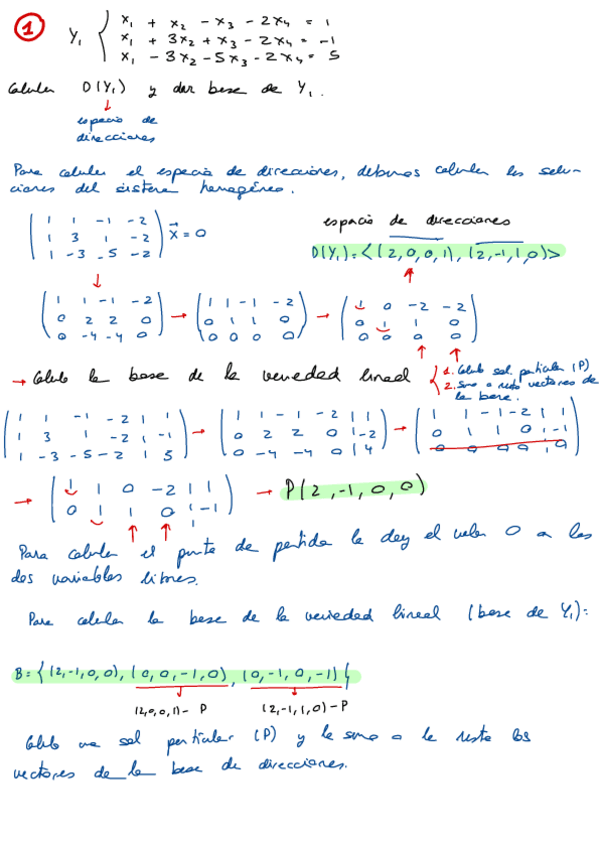 1
Y₁ { x₁ + x₂ - x₃ - 2x₄ = 1
x₁ + 3x₂ + x₃ - 2x₄ = -1
x₁ - 3x₂ - 5x₃ - 2x₄ = 5
Calcular D(Y₁) y dar base de Y₁.
↓
espacio de
direcciones
Para calcular el espacio de direcciones, debemos calcular las solu-
ciones del sistema homogéneo.
espacio de direcciones
( 1 1 -1 -2
1 3 1 -2
1 -3 -5 -2 ) x⃗ = 0
D(Y₁) = <(2,0,0,1), (2,-1,1,0)>
↓
( 1 1 -1 -2
0 2 2 0
0 -4 -4 0 ) → ( 1 1 -1 -2
0 1 1 0
0 0 0 0 ) → ( 1 0 -2 -2
0 1 1 0
0 0 0 0 )
→ Calculo la base de la variedad lineal { 1. Calculo sol. particular (P)
2. Sumo o resto vectores de
la base.
( 1 1 -1 -2 | 1
1 3 1 -2 | -1
1 -3 -5 -2 | 5 ) → ( 1 1 -1 -2 | 1
0 2 2 0 | -2
0 -4 -4 0 | 4 ) → ( 1 1 -1 -2 | 1
0 1 1 0 | -1
0 0 0 0 | 0 )
→ ( 1 1 0 -2 | 1
0 1 1 0 | -1 ) → P(2,-1,0,0)
Para calcular el punto de partida le doy el valor 0 a las
dos variables libres.
Para calcular la base de la variedad lineal (base de Y₁):
B = { (2,-1,0,0), (0,0,-1,0), (0,-1,0,-1) }
(2,0,0,1) - P (2,-1,1,0) - P
Calculo una sol particular (P) y le sumo o le resto los
vectores de la base de direcciones.